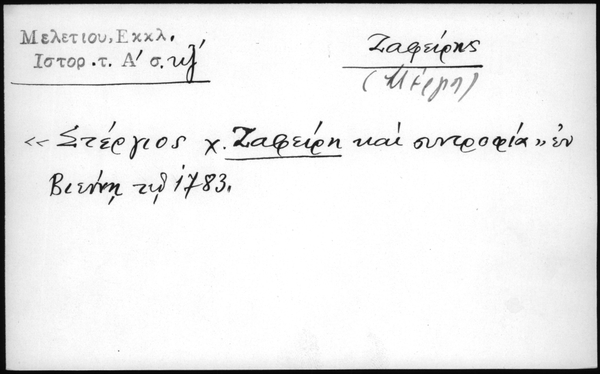 Μελετίου, Εκκλ.
Ιστορ. τ. Α' σ. κζ'
Ζαφείρης
«Στέργιος χ. Ζαφείρη καί συντροφία» ἐν
Βιέννῃ τῷ 1783.